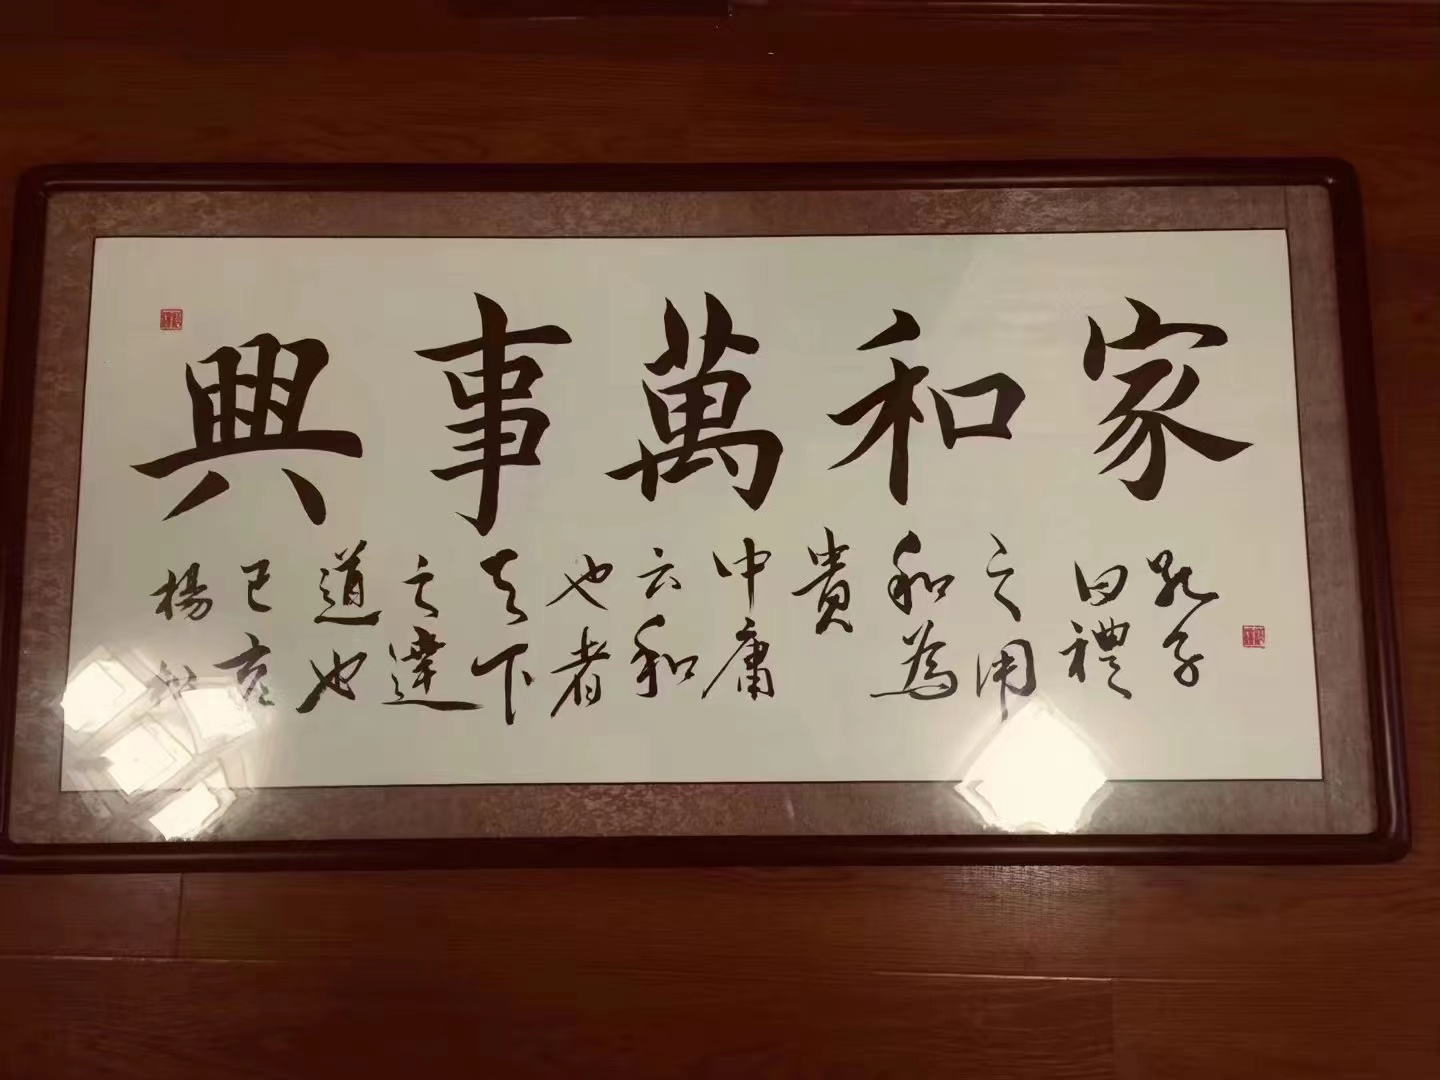 家和萬事興
孔子
曰禮
之用
和為
貴
中庸
云和
也者
天下
之達
道也
己亥
楊